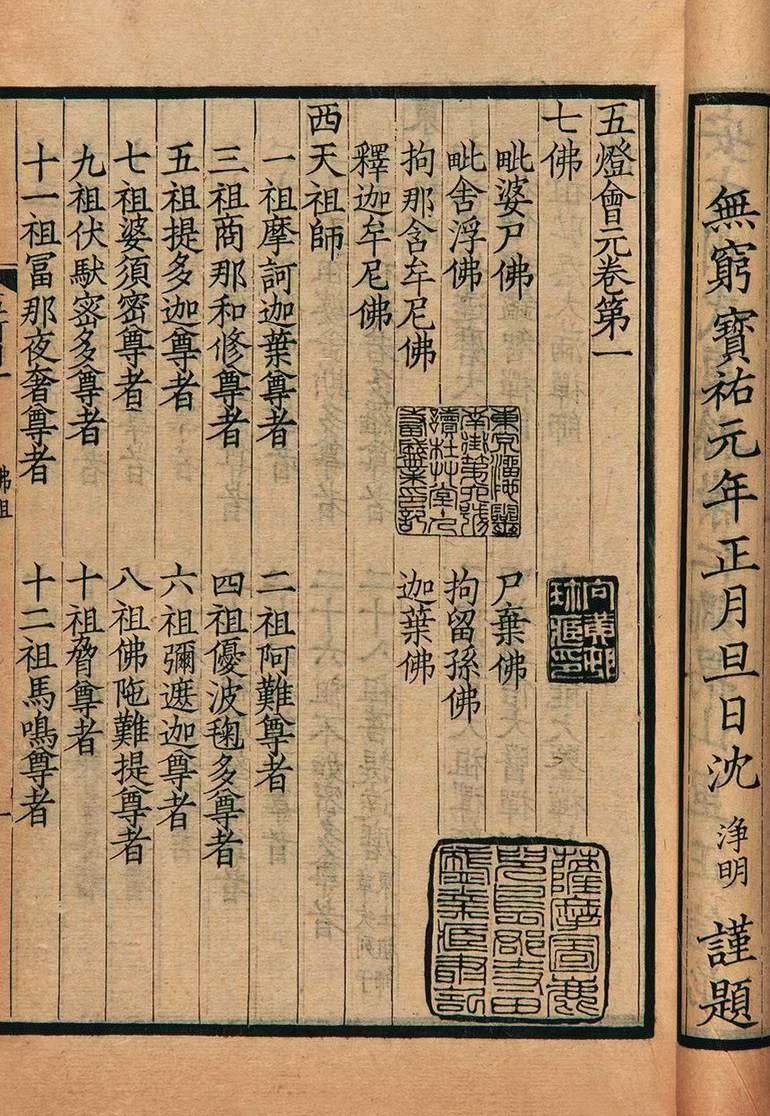 無窮寶祐元年正月旦日沈淨明謹題
五燈會元卷第一
七佛
毗婆尸佛 尸棄佛
毗舍浮佛 拘留孫佛
拘那含牟尼佛 迦葉佛
釋迦牟尼佛
西天祖師
一祖摩訶迦葉尊者 二祖阿難尊者
三祖商那和修尊者 四祖優波毱多尊者
五祖提多迦尊者 六祖彌遮迦尊者
七祖婆須密尊者 八祖佛陁難提尊者
九祖伏馱密多尊者 十祖脅尊者
十一祖冨那夜奢尊者 十二祖馬鳴尊者